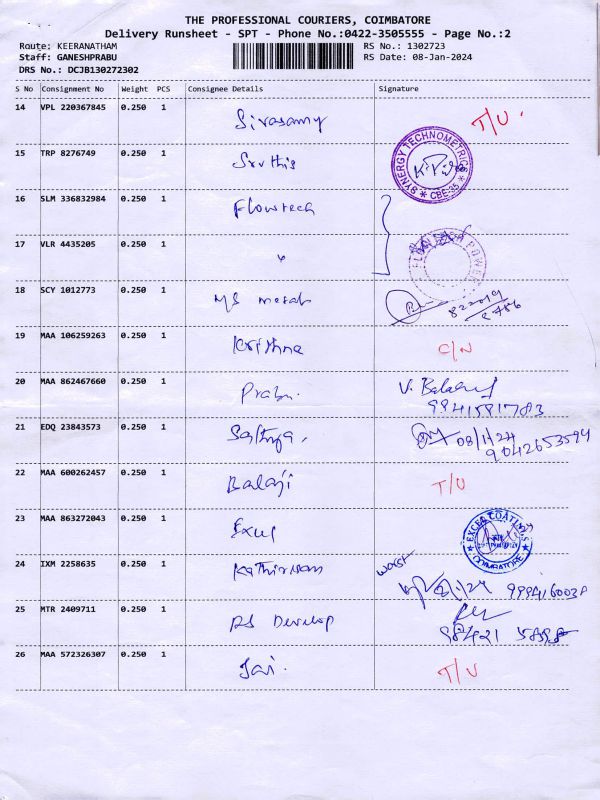 THE PROFESSIONAL COURIERS, COIMBATORE
Delivery Runsheet - SPT - Phone No.:0422-3505555 - Page No.:2
Route: KEERANATHAM RS No.: 1302723
Staff: GANESHPRABU RS Date: 08-Jan-2024
DRS No.: DCJB130272302
S No Consignment No Weight PCS Consignee Details Signature
14 VPL 220367845 0.250 1 Sivasamy T/U
15 TRP 8276749 0.250 1 Sruthis SYNERGY TECHNOMETRICS CBE-35
16 SLM 336832984 0.250 1 Flowtech
17 VLR 4435205 0.250 1 " POWER
18 SCY 1012773 0.250 1 MS metals
19 MAA 106259263 0.250 1 Krithna C/N
20 MAA 862467660 0.250 1 Prabu. V.
9941581783
21 EDQ 23843573 0.250 1 Sathya. 08/1/24
9042653594
22 MAA 600262457 0.250 1 Balaji T/U
23 MAA 863272043 0.250 1 Excel EXCEL COATINGS COIMBATORE
24 IXM 2258635 0.250 1
25 MTR 2409711 0.250 1 RS Develop 98421
26 MAA 572326307 0.250 1 Jai. T/U